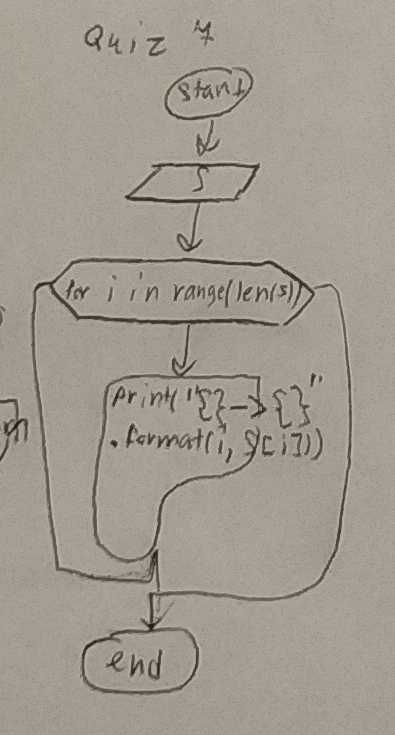 Quiz 7
start
S
for i in range(len(s))
print("{}->{}"
.format(i, S[i]))
end